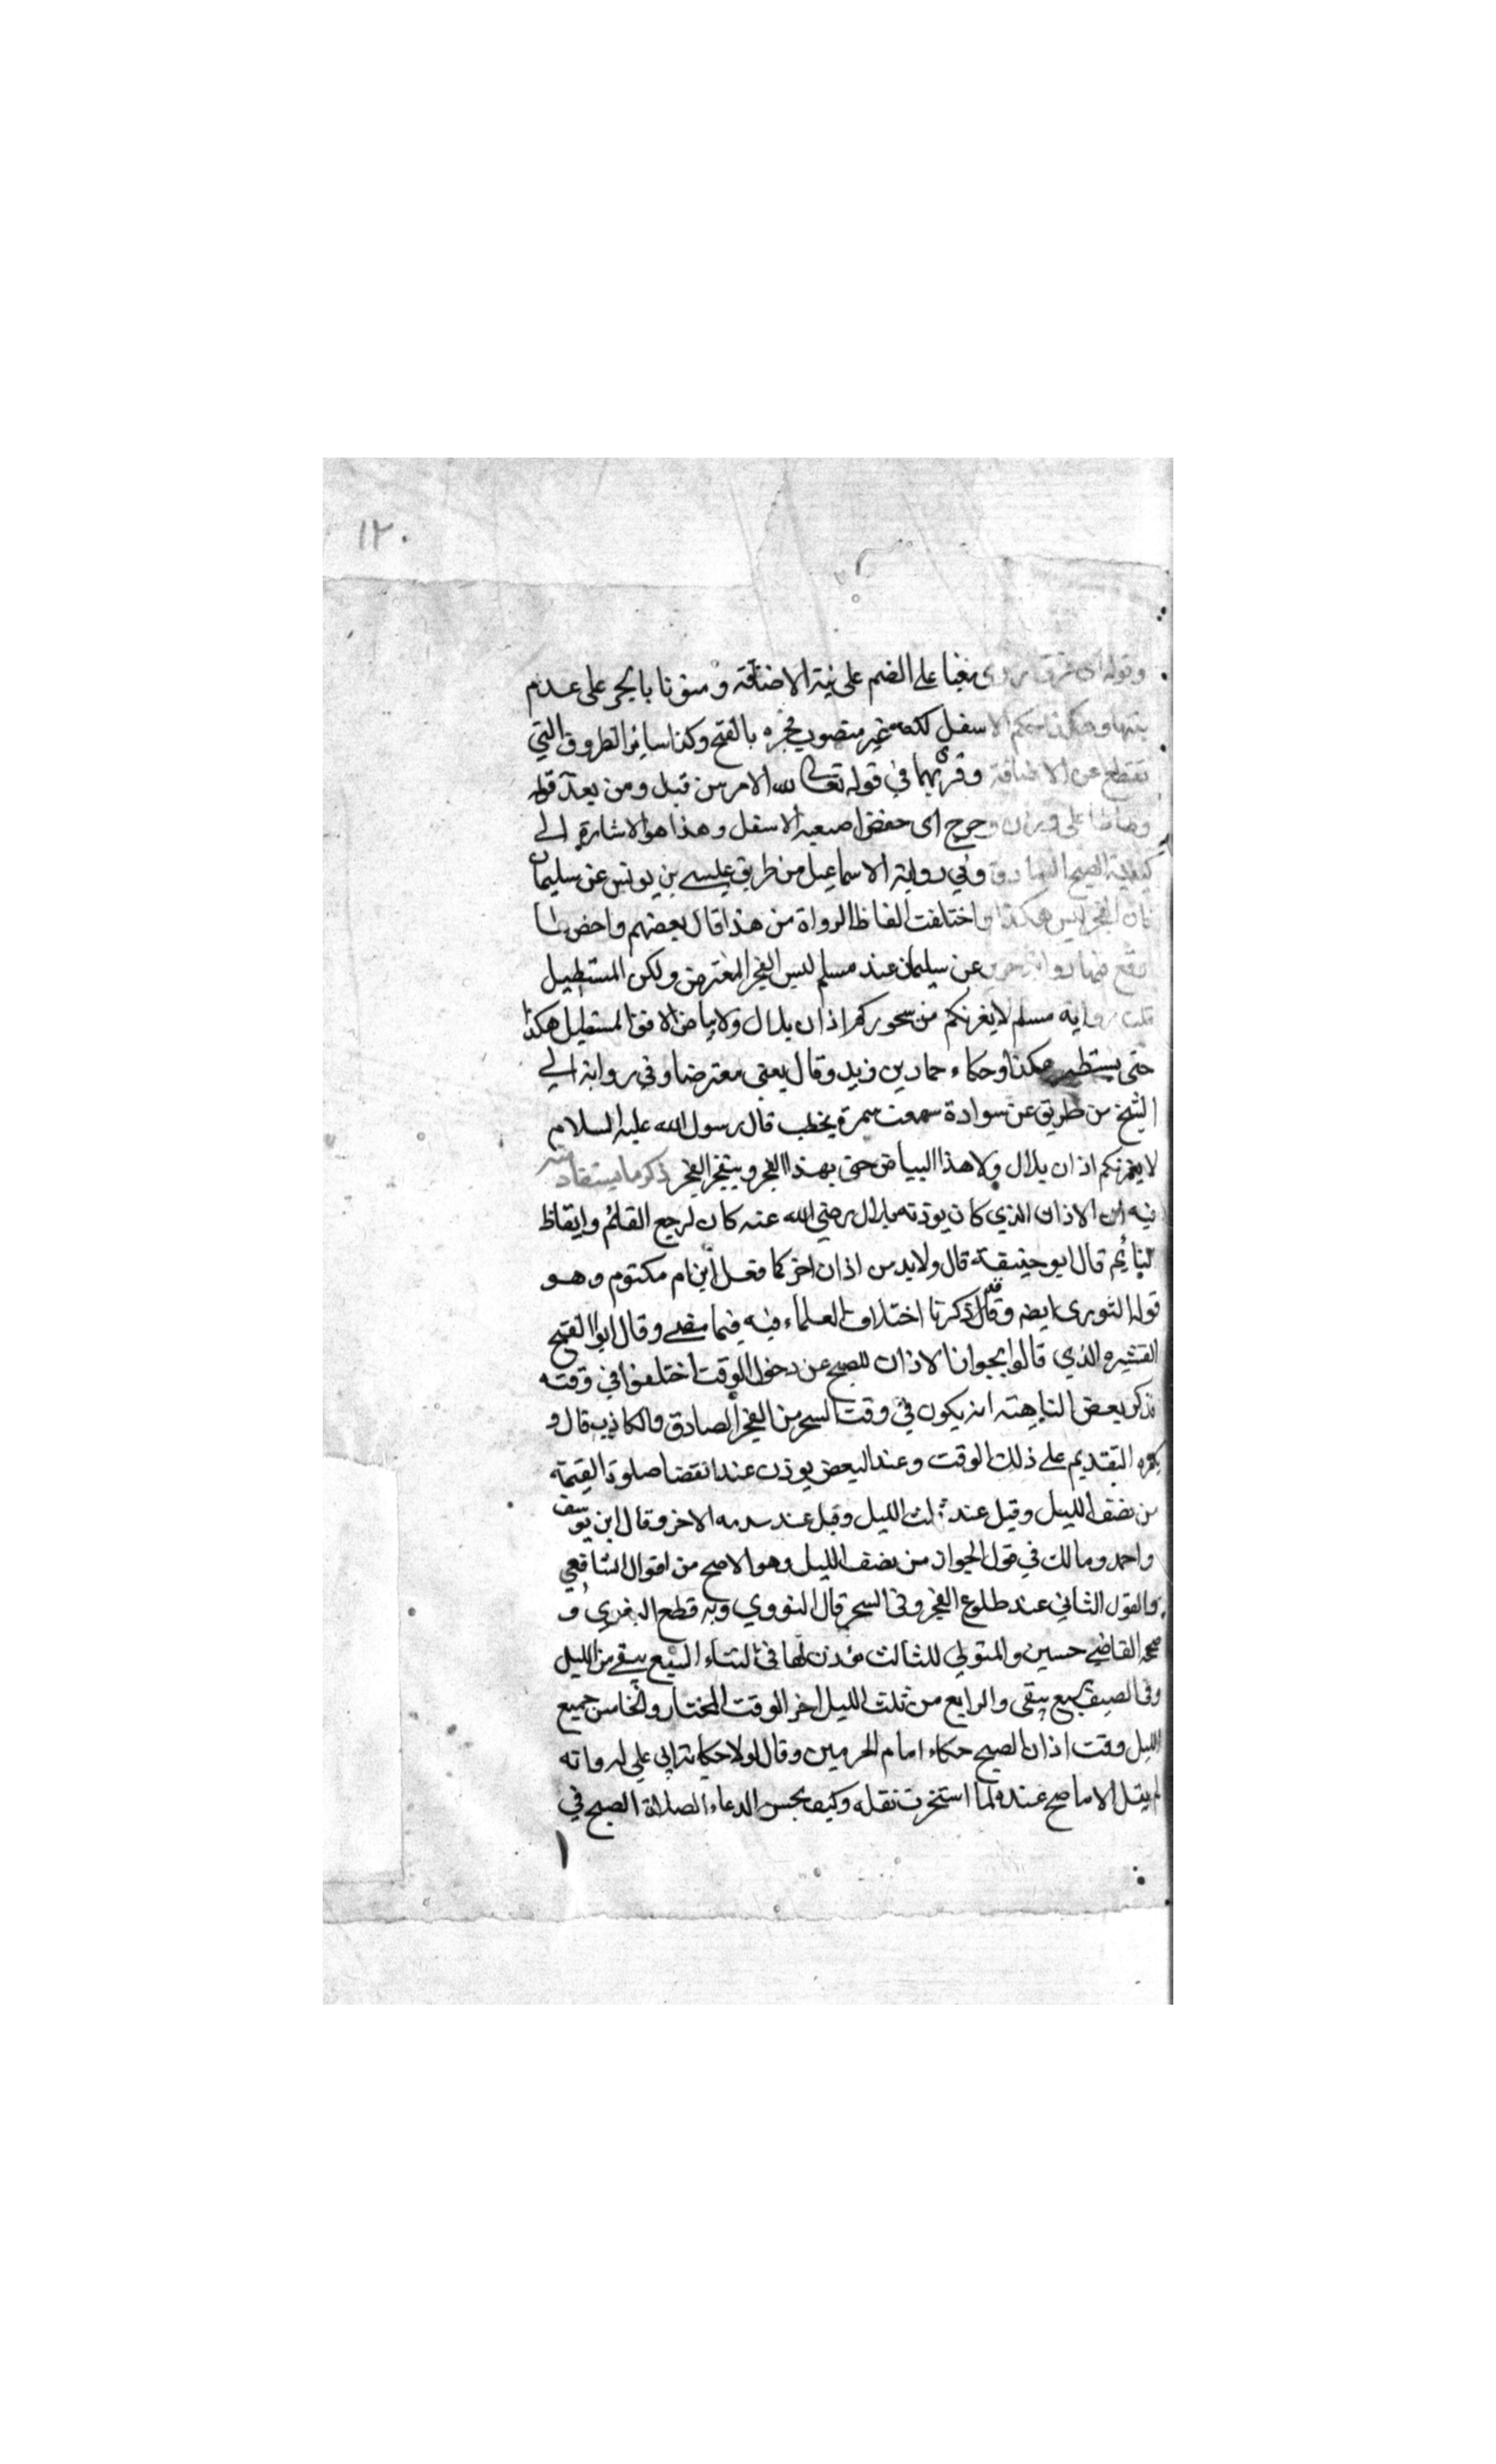 ١٢٠
وقوله الى فوق روى مبنيا على الضم على نية الاضافة ومنونا بالجر على عدم
نيتها وهكذا حكم الاسفل لكنه غير منصرف فجره بالفتح وكذا ساير الظروف التي
تقطع عن الاضافة وقرئ بهما في قوله تعالى لله الامر من قبل ومن بعد قوله
وطاطا على وزن دحرج اى خفض اصبعيه الاسفل وهذا هو الاشارة الى
كيفية الصبح الصادق وفي رواية الاسماعيل من طريق عيسى بن يونس عن سليمان
فان الفجر ليس هكذا واختلفت الفاظ الرواة من هذا قال بعضهم واخض طا
وقع فيها رواية جرير عن سليمان عند مسلم ليس الفجر المعترض ولكن المستطيل
قلت رواية مسلم لا يغرنكم من سحوركم اذان بلال ولا بياض الافق المستطيل هكذا
حتى يستطير هكذا وحكاه حماد بن زيد وقال يعني معترضا وفي رواية ابي
الشيخ من طريق عن سوادة سمعت سمرة يخطب قال رسول الله عليه السلام
لا يغرنكم اذان بلال ولا هذا البياض حتى بهذا الفجر وينفجر الفجر ذكر ما يستفاد منه
فيه ان الاذان الذي كان يوذنه بلال رضي الله عنه كان لرجع القائم وايقاظ
النايم قال ابو حنيفة قال ولابد من اذان اخر كما فعل ابن ام مكتوم وهو
قول الثورى ايضه وقال قد ذكرنا اختلاف العلماء فيه فيما مضى وقال ابو الفتح
القشيره الذي قالوا بجواز الاذان للصبح عن دخول الوقت اختلفوا في وقته
فذكر بعض الناهته انه يكون في وقت السحر من الفجر الصادق والكاذب قال و
يكره التقديم على ذلك الوقت وعند البعض يوذن عند انقضا صلوة القيمة
من نصف الليل وقيل عند ثلث الليل وقيل عند سدسه الاخر وقال ابن يوسف
واحمد ومالك في قول الجواز من نصف الليل وهو الاصح من اقوال الشافعي
والقول الثاني عند طلوع الفجر وفى السحر قال النووي وبه قطع البغوي و
صححه القاضي حسين والمتولي للثالث مؤذن لها في الشتاء السبع يبقى من الليل
وفى الصيف سبع يبقى والرابع من ثلث الليل اخر الوقت المختار والخامس جميع
الليل وقت اذان الصبح حكاه امام الحرمين وقال لولا حكاية ابي علي له وانه
لم ينقل الا ما صح عنده لما استخرت نقله وكيف يحسن الدعاء الصلاة الصبح في